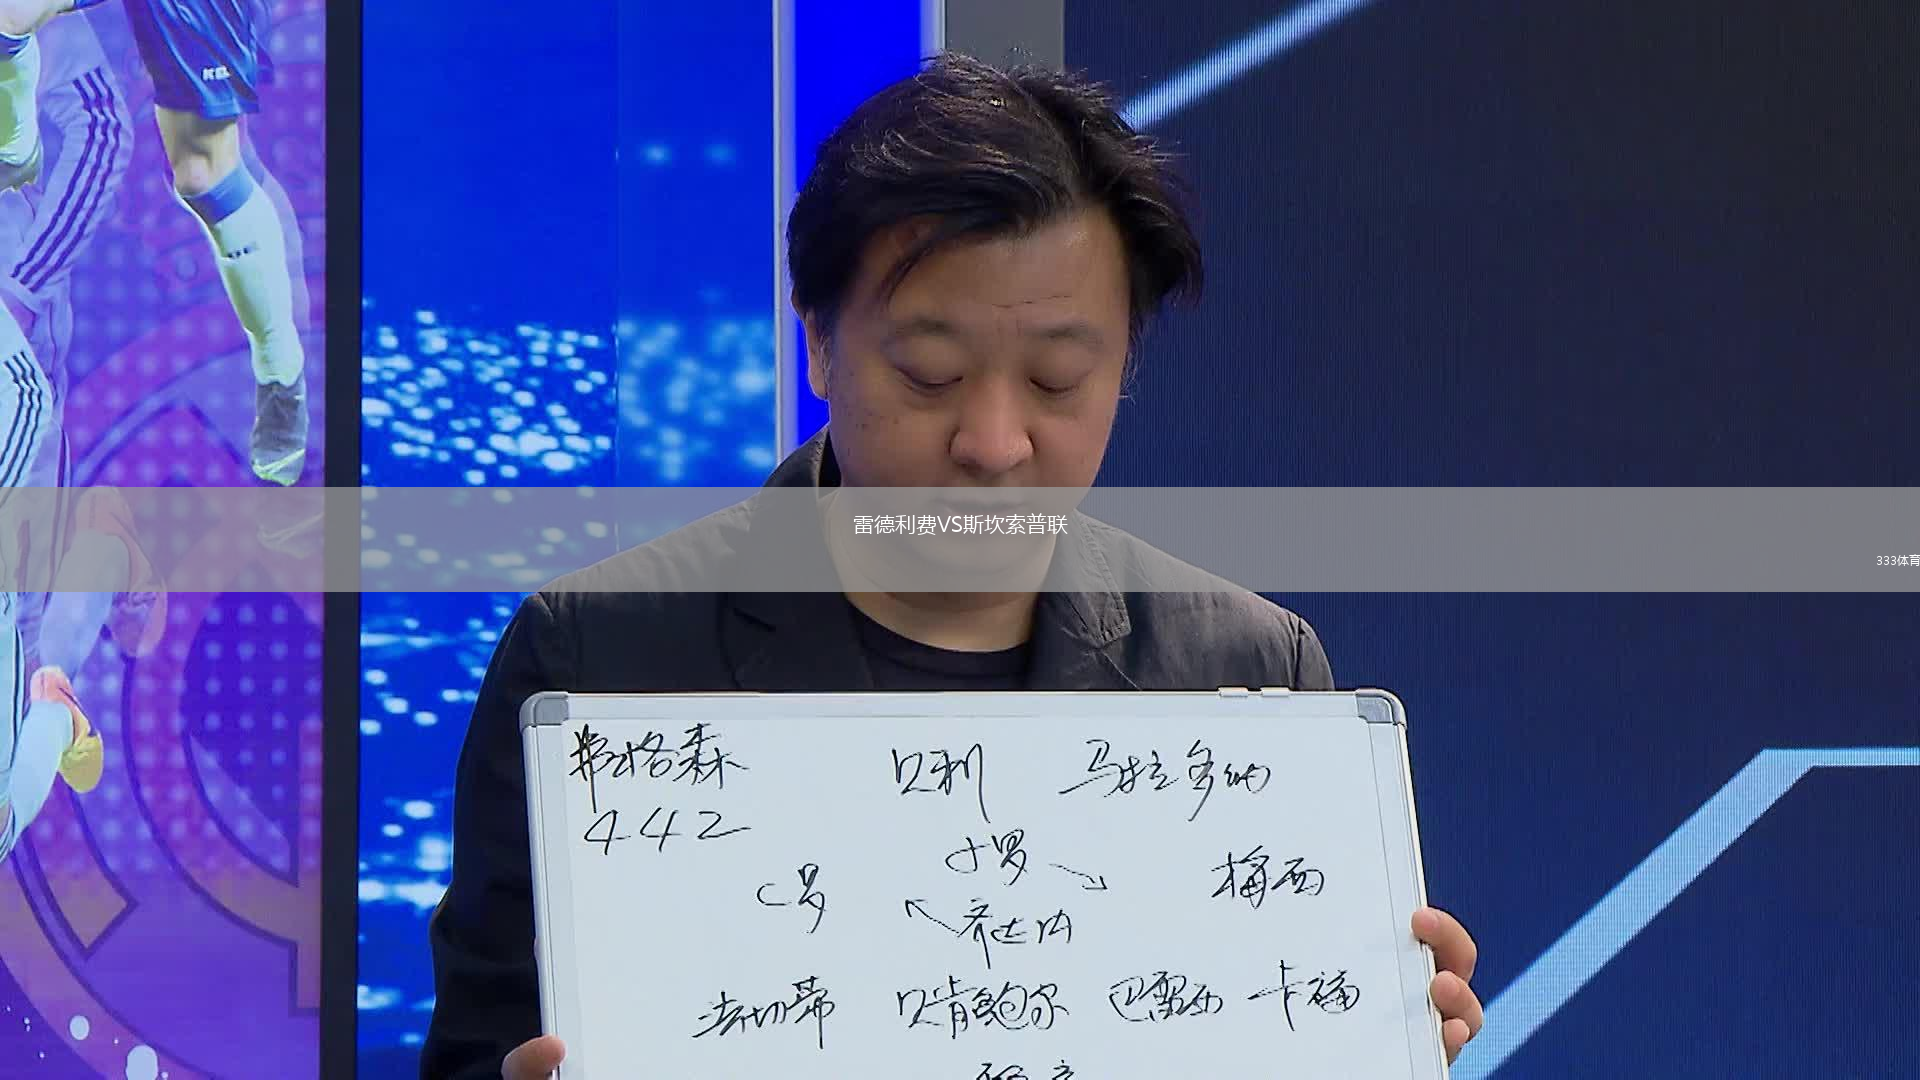 雷德利费VS斯坎索普联
333体育
弗格森 贝利 马拉多纳
442
小罗
C罗 梅西
齐达内
法切蒂 贝肯鲍尔 巴雷西 卡福